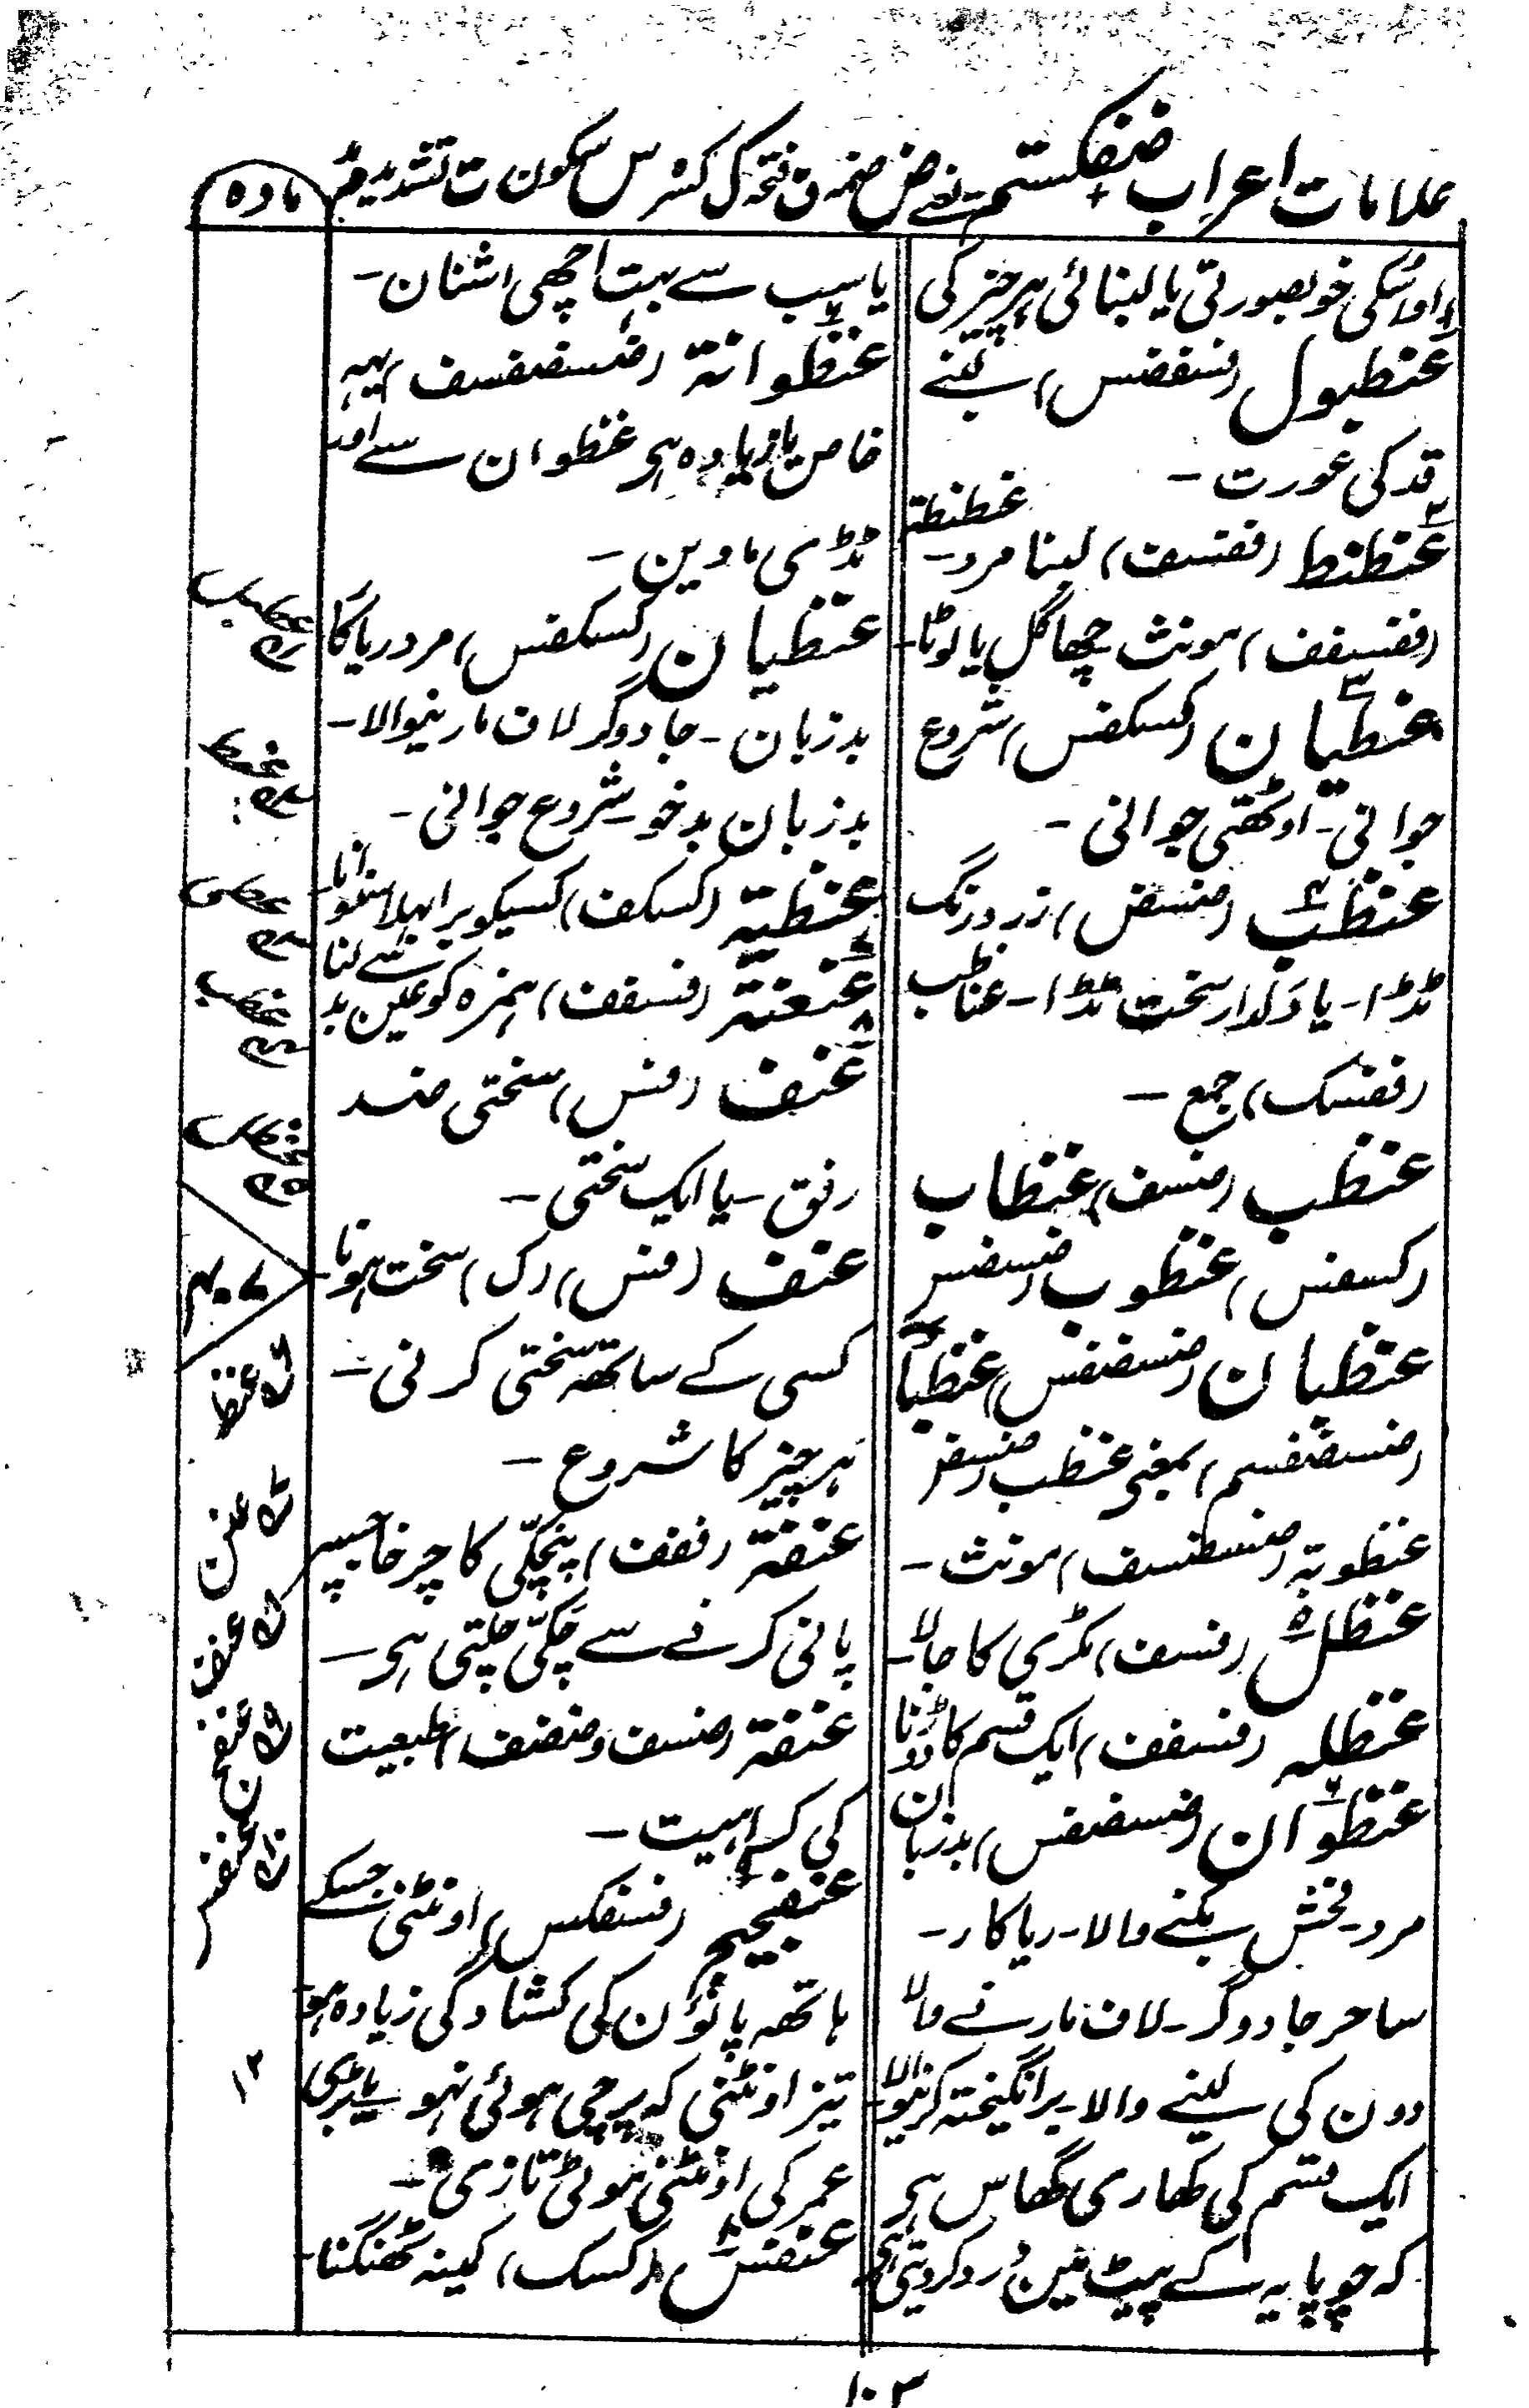 علامات اعراب ضفکستم یعنے ض ضمہ ف فتحہ ک کسرہ س سکون ت تشدید م
مادہ
اور اوسکی خوبصورتی یا لنبائی ہر چیز کی
عنطبول (فسفضس) لنبے
قد کی عورت -
عنطنط (ففسف) لنبا مرد - عنطنطۃ
(ففسفف) مونث چھاگل یا لوٹا -
عنطیان (کسکفس) شروع
جوانی - اوٹھتی جوانی -
عنظب (ضسفض) زرد رنگ
ٹڈا - یا دَلدار سخت ٹڈا - عناظب
(ففسک) جمع -
عنظب (ضسف) عنظاب
(کسفس) عنظوب (ضسضس
عنظبان (ضسضفس) عنظبا
(ضسضفسم) بمعنی عنظب (ضسفر
عنظوبۃ (ضسضسف) مونث -
عنظل (فسف) مکڑی کا جالا -
عنظلہ (فسفف) ایک قسم کا دوڑنا
عنظوان (ضسضفس) بدزبان
مرد - فحش بکنے والا - ریاکار -
ساحر جادوگر - لاف مارنے والا
دون کی لینے والا - برانگیختہ کرنیوالا -
ایک قسم کی کھاری گھاس ہی
کہ چوپایہ کے پیٹ مین درد کردیتی ہی
یا سب سے بہت اچھی اشنان -
عنظوانۃ (ضسضفسف) یہہ
خاص یا زیادہ ہی عنظوان سے اور
ٹڈی مادین -
عنظیان (کسکفس) مرد ریاکا
بدزبان - جادوگر لاف مارنیوالا -
بدزبان بدخو شروع جوانی -
عنظیۃ (کسکف) کسیکو برا بھلا سنوانا -
عنعنۃ (فسفف) ہمزہ کو عین بد
عنف (فس) سختی ضد
رفق - یا ایک سختی -
عنف (فس) (ک) سخت ہونا -
کسی کے ساتھہ سختی کرنی -
ہر چیز کا شروع -
عنفۃ (ففف) پنچکّی کا چرخا جسپر
پانی کرنے سے چکّی چلتی ہی -
عنفۃ (ضسف و ضضف) طبعیت
کی کراہیت -
عنفیج (فسفکس) اونٹنی جسکے
ہاتھہ پانؤن کی کشادگی زیادہ ہو
تیز اونٹنی کہ پرچی ہوئی نہو - یا بڑی
عمر کی اونٹنی موٹی تازی -
عنفش (کسک) کمینہ ٹھنگنا -
عنظ
عنن
عنف
عنفج
عنفس
۱۲
۱۰۳